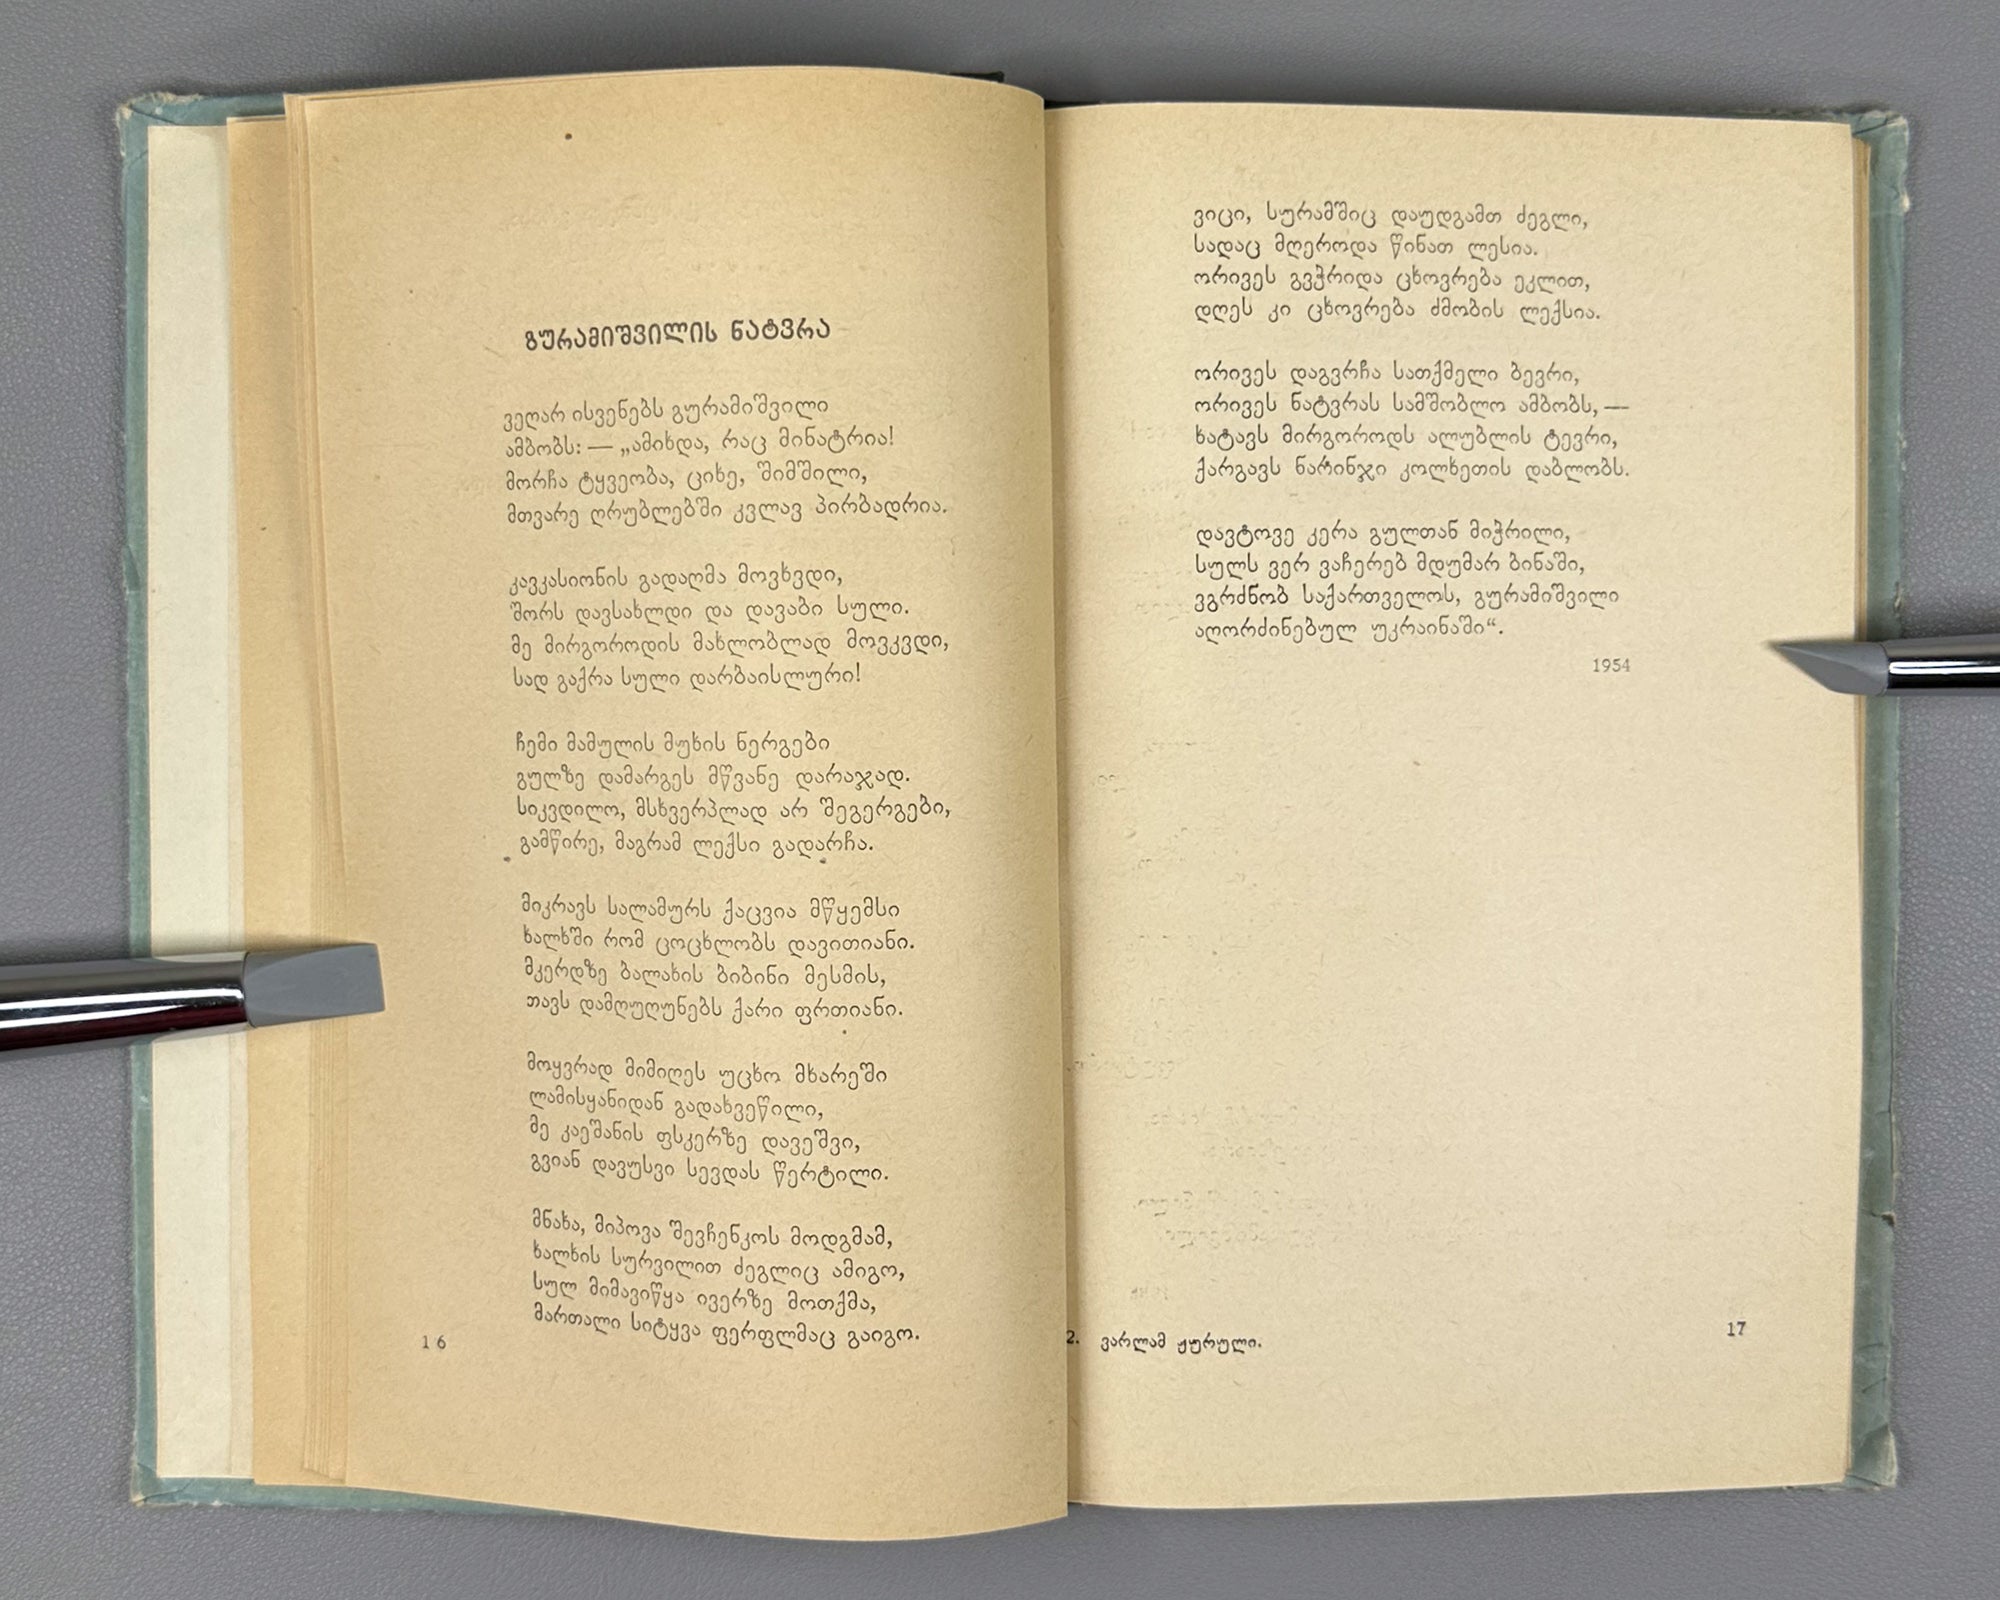 გურამიშვილის ნატვრა
ვეღარ ისვენებს გურამიშვილი
ამბობს: — „ამიხდა, რაც მინატრია!
მორჩა ტყვეობა, ციხე, შიმშილი,
მთვარე ღრუბლებში კვლავ პირბადრია.
კავკასიონის გადაღმა მოვხვდი,
შორს დავსახლდი და დავაბი სული.
მე მირგოროდის მახლობლად მოვკვდი,
სად გაქრა სული დარბაისლური!
ჩემი მამულის მუხის ნერგები
გულზე დამარგეს მწვანე დარაჯად.
სიკვდილო, მსხვერპლად არ შეგერგები,
გამწირე, მაგრამ ლექსი გადარჩა.
მიკრავს სალამურს ქაცვია მწყემსი
ხალხში რომ ცოცხლობს დავითიანი.
მკერდზე ბალახის ბიბინი მესმის,
თავს დამღუღუნებს ქარი ფრთიანი.
მოყვრად მიმიღეს უცხო მხარეში
ლამისყანიდან გადახვეწილი,
მე კაეშანის ფსკერზე დავეშვი,
გვიან დავუსვი სევდას წერტილი.
მნახა, მიპოვა შევჩენკოს მოდგმამ,
ხალხის სურვილით ძეგლიც ამიგო,
სულ მიმავიწყა ივერზე მოთქმა,
მართალი სიტყვა ფერფლმაც გაიგო.
16
ვიცი, სურამშიც დაუდგამთ ძეგლი,
სადაც მღეროდა წინათ ლესია.
ორივეს გვჭრიდა ცხოვრება ეკლით,
დღეს კი ცხოვრება ძმობის ლექსია.
ორივეს დაგვრჩა სათქმელი ბევრი,
ორივეს ნატვრას სამშობლო ამბობს, —
ხატავს მირგოროდს ალუბლის ტევრი,
ქარგავს ნარინჯი კოლხეთის დაბლობს.
დავტოვე კერა გულთან მიჭრილი,
სულს ვერ ვაჩერებ მდუმარ ბინაში,
ვგრძნობ საქართველოს, გურამიშვილი
აღორძინებულ უკრაინაში“.
1954
2. ვარლამ ჟურული.
17